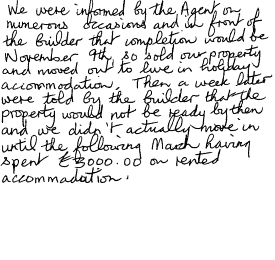 We were informed by the Agent on
numerous occasions and in front of
the builder that completion would be
November 9th so sold our property
and moved out to live in holiday
accommodation. Then a week later
were told by the builder that the
property would not be ready by then
and we didn't actually move in
until the following March having
spent £3000.00 on rented
accommadation.